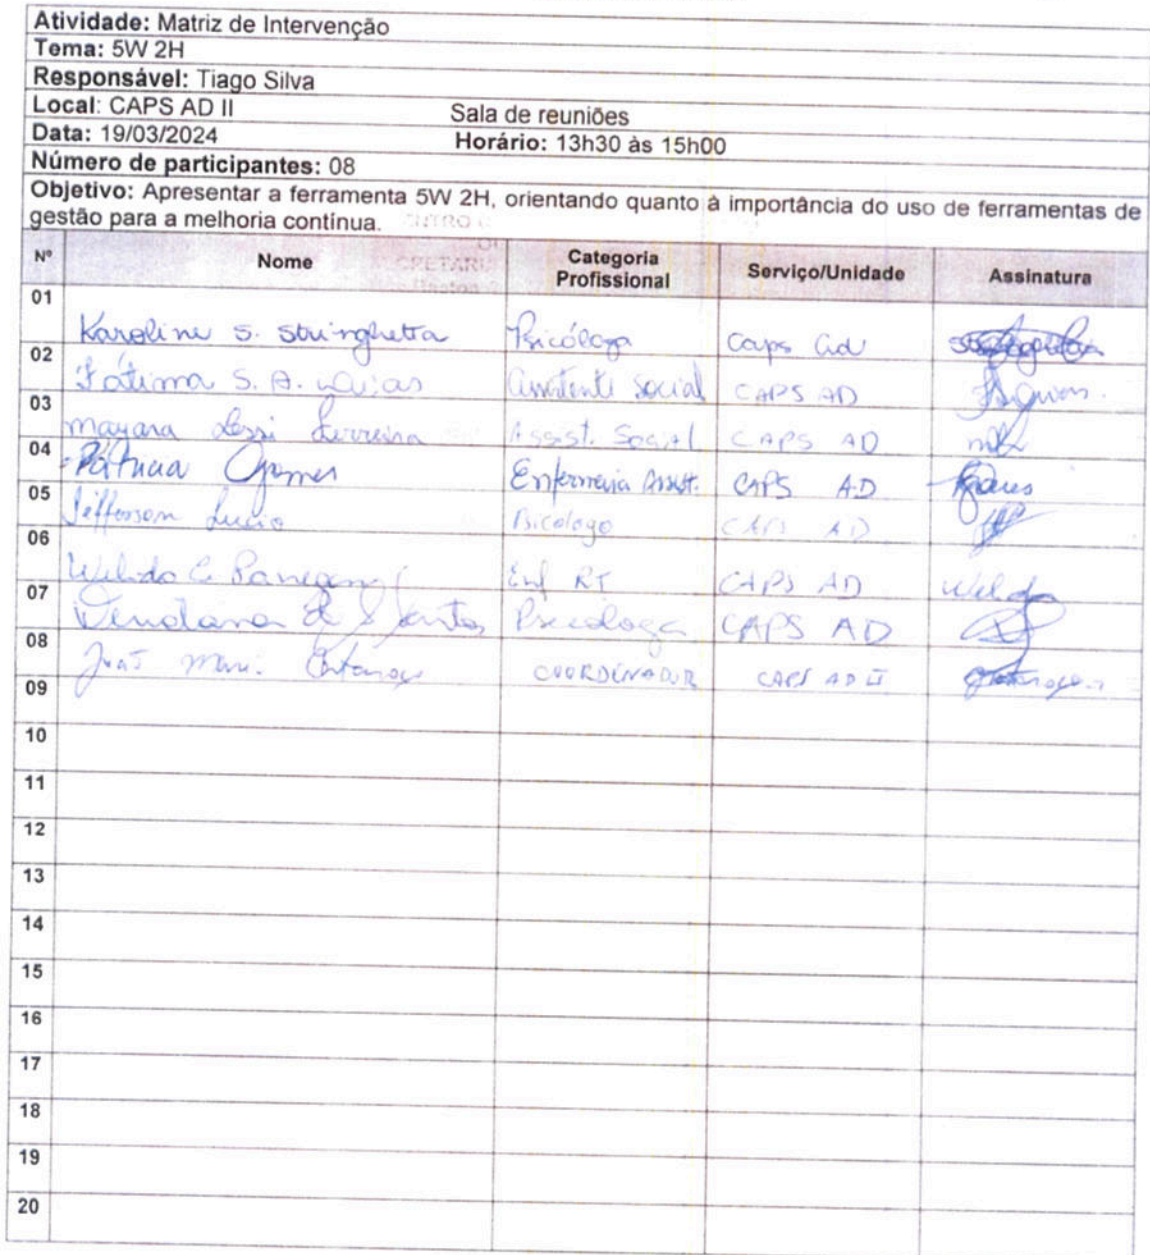 Atividade: Matriz de Intervenção
Tema: 5W 2H
Responsável: Tiago Silva
Local: CAPS AD II Sala de reuniões
Data: 19/03/2024 Horário: 13h30 às 15h00
Número de participantes: 08
Objetivo: Apresentar a ferramenta 5W 2H, orientando quanto à importância do uso de ferramentas de
gestão para a melhoria contínua.
Nº Nome Categoria Profissional Serviço/Unidade Assinatura
01 Karoline S. Stringhetta Psicóloga Caps ad
02 Fátima S. A. Assistente Social CAPS AD
03 Mayara Ferreira Assist. Social CAPS AD
04 Patricia Gomes Enfermeira Assist. CAPS AD
05 Jefferson Lucio Psicologo CAPS AD
06 Welido C. Enf RT CAPS AD
07 Santos Psicologa CAPS AD
08 COORDENADOR CAPS AD II
09
10
11
12
13
14
15
16
17
18
19
20